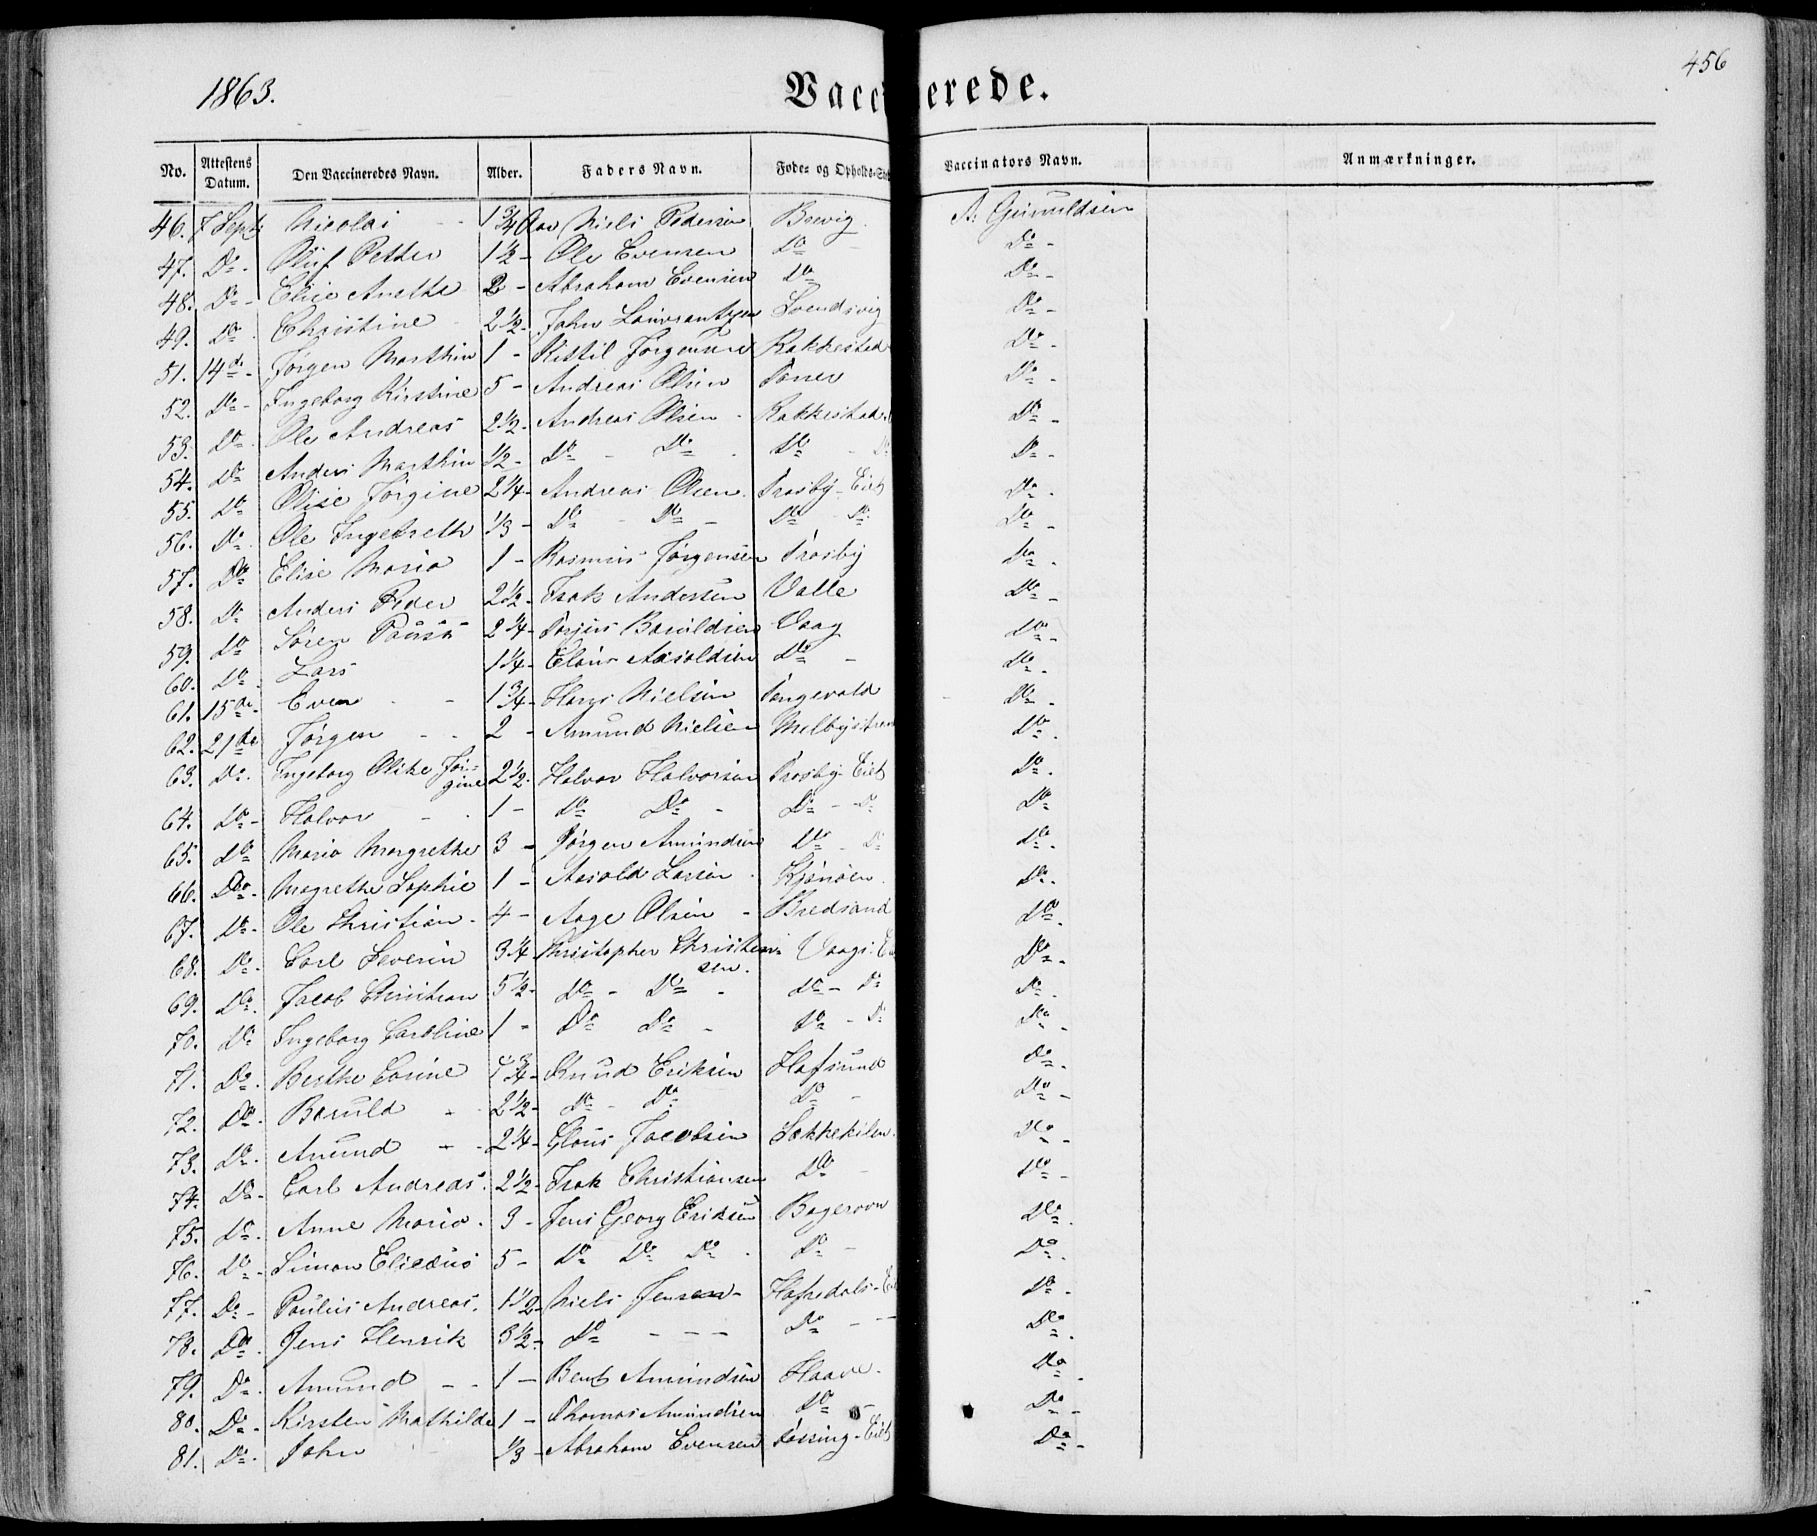 1863.
Vaccinerede.
456
No. Attestens Datum. Den Vaccineredes Navn. Alder. Faders Navn. Føde- og Opholds-St Vaccinators Navn. Anmærkninger.
46. 7 Sept. Nicolai - - 1 3/4 Aar Niels Pedersen Brevig. A:
47. Do - Oluf Petter 1 1/2 - Ole Evensen Do Do -
48. Do - Elise Anethe 2 - Abraham Evensen Do Do -
49. Do Christine 2 1/2 - John Lauvrantzen Svendsvig Do -
51. 14de - Jørgen Marthin 1 - Kittil Jørgensen Rakkestad Do -
52. Do - Ingeborg Kirstine 5 - Andreas Olsen Do -
53. Do Ole Andreas 2 1/2 - Andreas Olsen - Rakkestad Do -
54. Do Anders Marthin 1/2 - Do - Do - Do - Do Do -
55. Do Olise Jørgine 2 1/4 - Andreas Olsen. Trosby - Eiet Do -
56. Do Ole Ingebreth 1/3 - Do - Do - Do - Do Do -
57. Do Elise Maria 1 - Rasmus Jørgensen Trosby Do -
58. Do Anders Peder 2 1/2 - Isak Andersen Valle Do -
59. Do Søren 2 1/4 - Torjus Baruldsen Vaag Do -
60. Do Lars 1 1/4 - Claus Aasoldsen Do - Do -
61. 15de - Even - - 1 3/4 - Hans Nielsen Tangevald Do -
62. 21de Jørgen - - 2 - Amund Nielsen Do -
63. Do - Ingeborg Olike Jør-
gine 2 1/2 - Halvor Halvorsen Trosby Eiet Do -
64. Do - Halvor - - 1 - Do Do - Do - Do Do
65. Do Maria Margrethe 3 - Jørgen Amundsen Do - Do Do -
66. Do - Magrethe Sophie 1 - Aasold Larsen - Kjønøen Do -
67. Do - Ole Christian - 4 - Aage Olsen - Bredsand Do -
68. Do - Carl Severin 3 1/4 - Christopher Christian-
sen. Vaags. Do -
69. Do - Jacob Christian 5 1/2 - Do - Do - Do - Do Do -
70. Do Ingeborg Caroline 1 - Do Do - Do - Do Do -
71. Do - Berthe Corine 3/4 - Knud Eriksen Hafsund Do -
72. Do - Baruld - - 2 1/2 - Do - Do Do - Do -
73. Do - Amund - - 2 1/4 - Claus Jacobsen Sækkekilen. Do -
74. Do - Carl Andreas 2 1/2 - Isak Christiansen Do - Do -
75. Do - Anne Maria - 3 - Jens Georg Eriksen Bagerovn Do -
76. Do - Simon Elisæus 5 - Do Do Do - Do - Do -
77. Do - Paulus Andreas. 1 1/2 - Niels Jensen - Hafsedals - Do -
78. Do - Jens Henrik 3 1/2 - Do - - - Do - - Do -
79. Do - Amund - - 1 - Bent Amundsen Haave - Do -
80. Do - Kirsten Mathilde 1 - Thomas Amundsen Do - Do -
81. Do - John 1/3 - Abraham Evensen Tossing - Eiet Do -